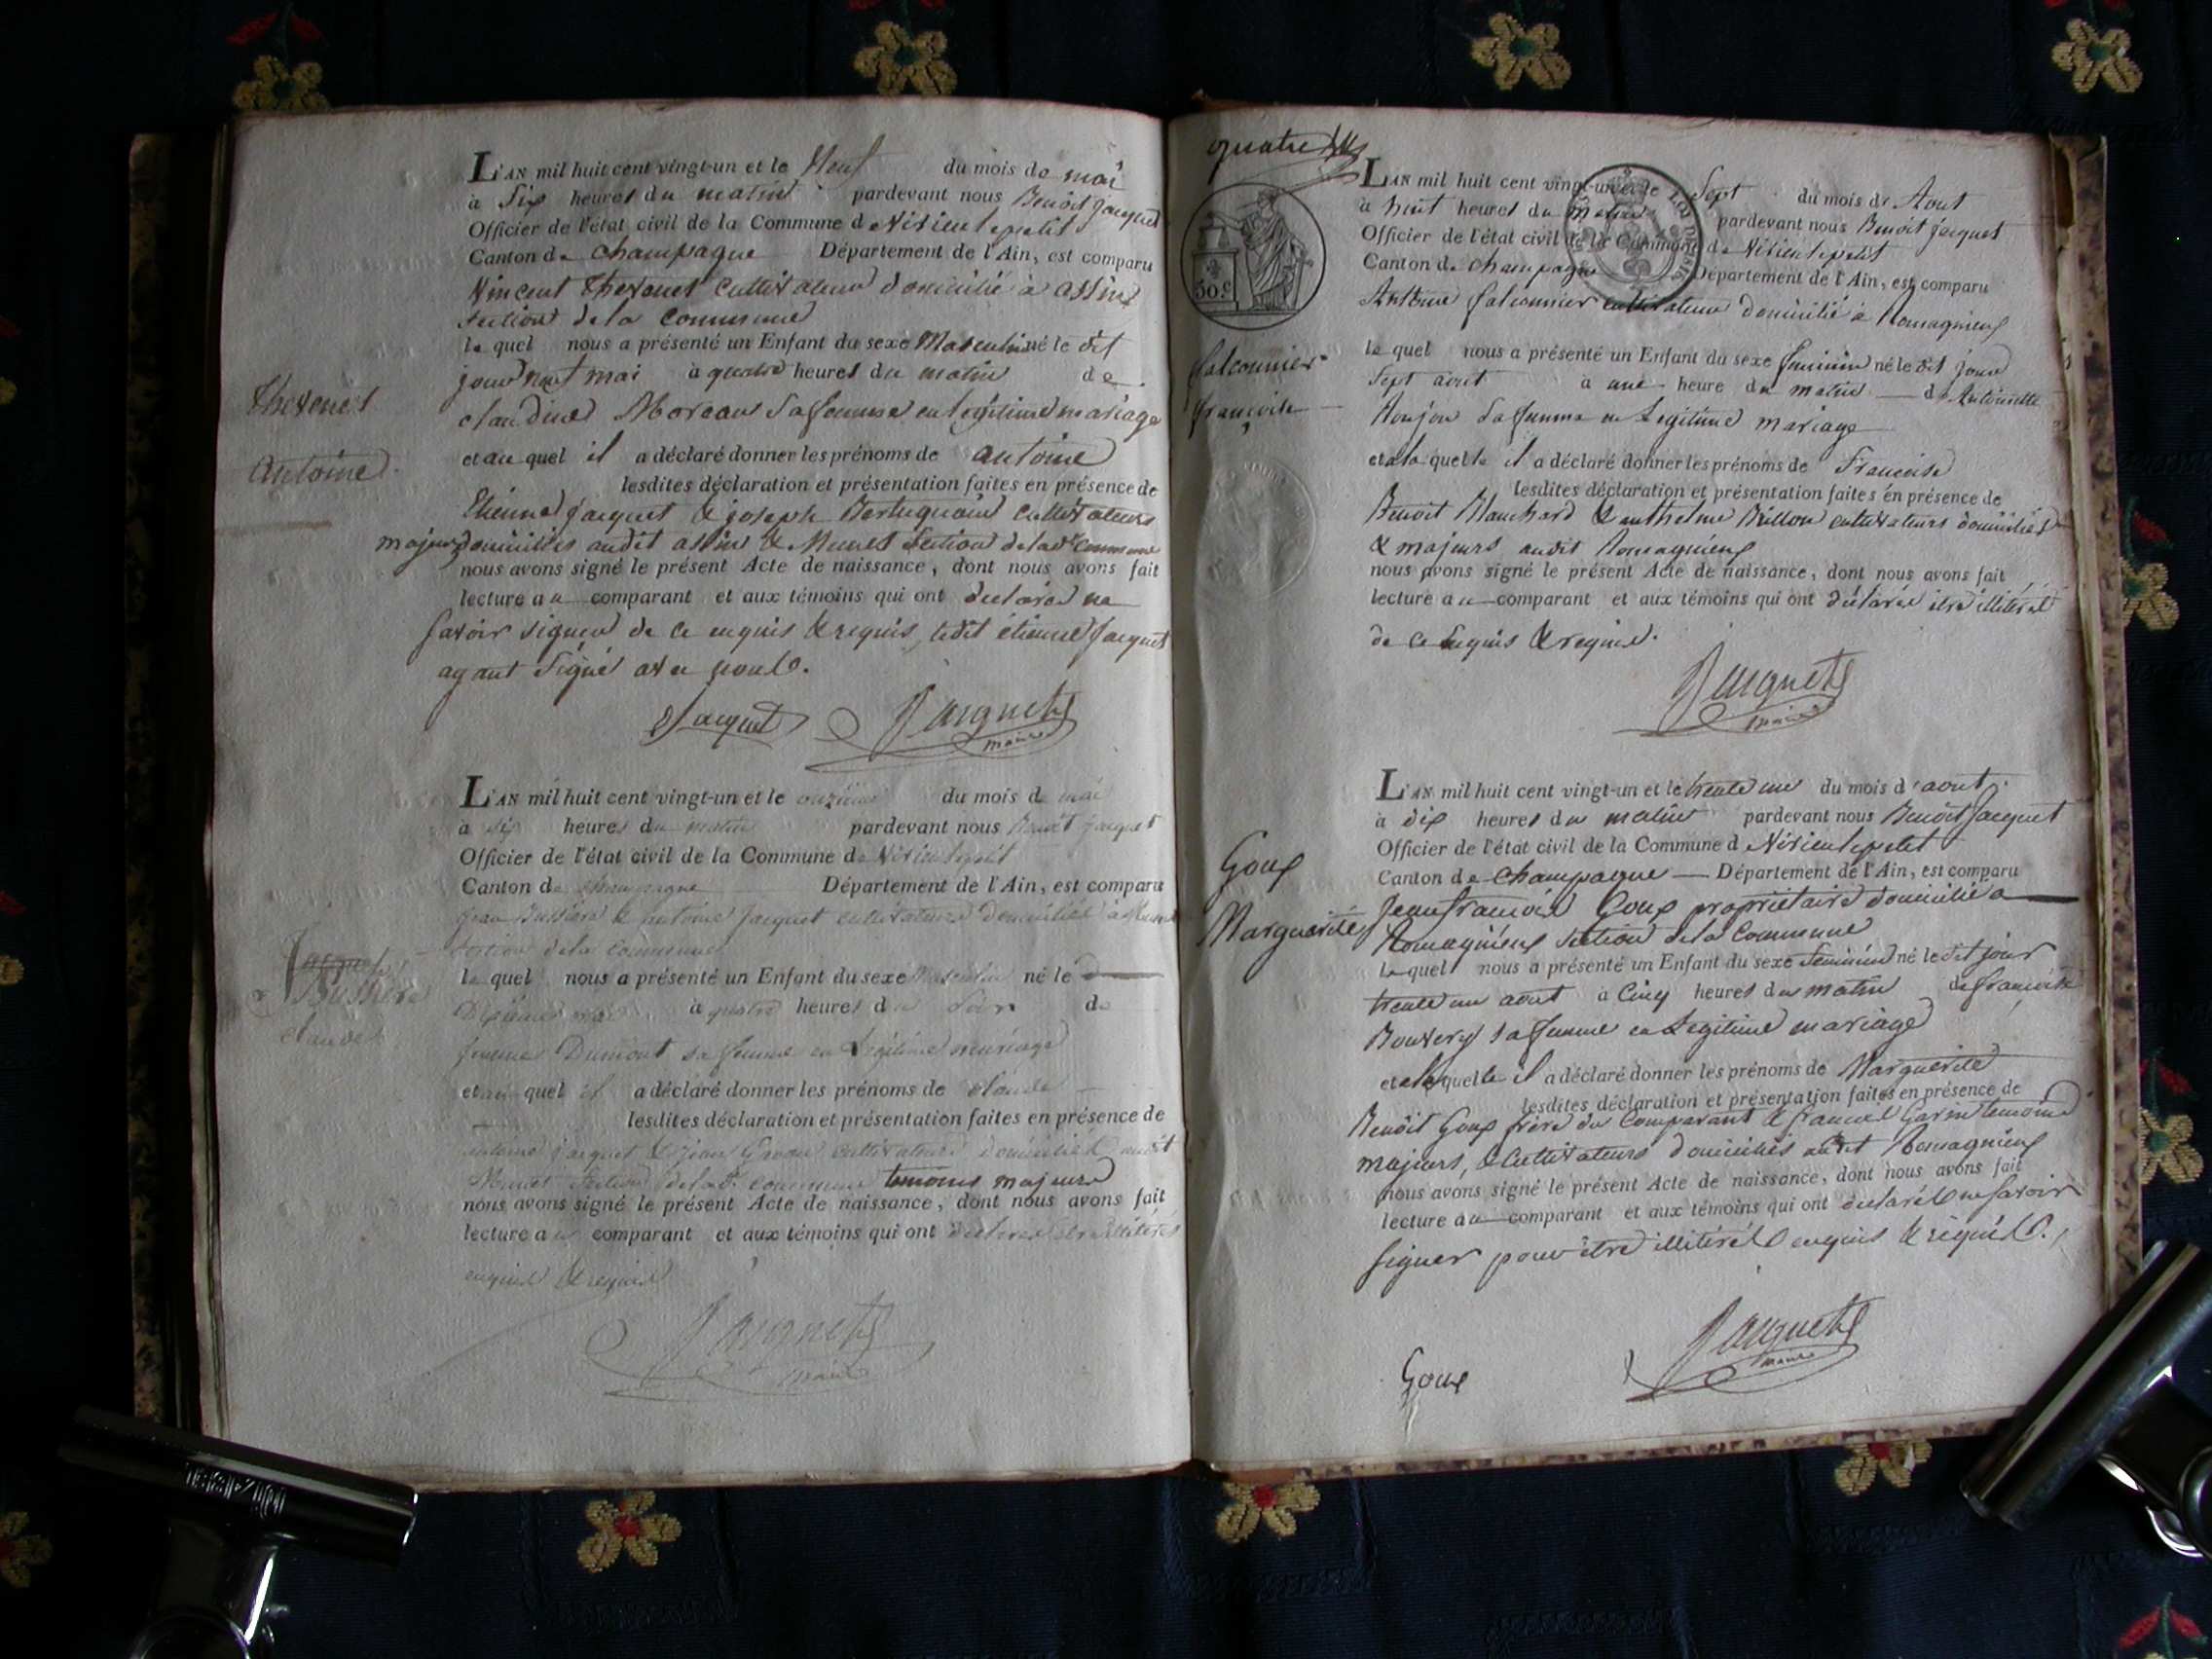 L'AN mil huit cent vingt-un et le Neuf du mois de mai
à Six heures du matin pardevant nous Benoit Jacquet
Officier de l'état civil de la Commune de Virieu le petit
Canton de champagne Département de l'Ain, est comparu
Vincent Thevenet cultivateur domicilié à assin
section de la Commune
le quel nous a présenté un Enfant du sexe Masculin né le dit
jour neuf mai à quatre heures du matin de
Thevenet
claudine Moreau sa femme en légitime mariage
et au quel il a déclaré donner les prénoms de antoine
Antoine
lesdites déclaration et présentation faites en présence de
Etienne Jacquet & joseph cultivateurs
majeurs domiciliés audit assin & Munet section de la de commune
nous avons signé le présent Acte de naissance, dont nous avons fait
lecture au comparant et aux témoins qui ont déclaré ne
savoir signer de ce enquis & requis, ledit étienne Jacquet
ayant signé avec nous.
Jacquet Jacquet
maire
L'AN mil huit cent vingt-un et le onzième du mois de mai
à six heures du matin pardevant nous Benoit Jacquet
Officier de l'état civil de la Commune de Virieu le petit
Canton de champagne Département de l'Ain, est comparu
Jean Bussière & antoine Jacquet cultivateurs domiciliés à Munet
section de la commune
Jacquet
le quel nous a présenté un Enfant du sexe Masculin né le
Bussière
Dixième mai à quatre heures du soir de
claude
Dumont sa femme en Légitime mariage
et au quel il a déclaré donner les prénoms de claude
lesdites déclaration et présentation faites en présence de
antoine Jacquet & jean cultivateurs domiciliés audit
Munet section de la de commune temoins majeurs
nous avons signé le présent Acte de naissance, dont nous avons fait
lecture au comparant et aux témoins qui ont déclaré être illitérés
enquis & requis
Jacquet
maire
quatre
L'AN mil huit cent vingt-un et le Sept du mois de Aout
à huit heures du matin pardevant nous Benoit Jacquet
Officier de l'état civil de la Commune de Virieu le petit
Canton de champagne Département de l'Ain, est comparu
50.c
LOI DE 1816
Antoine falconnier cultivateur domicilié à Romagnieu
le quel nous a présenté un Enfant du sexe feminin né le dit jour
falconnier
Sept aout à une heure du matin de Antoinette
françoise
sa femme en Legitime mariage
et à la quelle il a déclaré donner les prénoms de Francoise
lesdites déclaration et présentation faites en présence de
Benoit Blanchard & anthelme Billon cultivateurs domiciliés
& majeurs audit Romagnieu
nous avons signé le présent Acte de naissance, dont nous avons fait
lecture au comparant et aux témoins qui ont déclaré être illitérés
de ce enquis & requis.
Jacquet
maire
L'AN mil huit cent vingt-un et le trente un du mois d'aout
à dix heures du matin pardevant nous Benoit Jacquet
Officier de l'état civil de la Commune de Virieu le petit
Goux
Canton de Champagne Département de l'Ain, est comparu
Jean françois Goux propriétaire domicilié a
Marguerite
Romagnieu section de la Commune
le quel nous a présenté un Enfant du sexe feminin né le dit jour
trente un aout à Cinq heures du matin de françoise
sa femme en Legitime mariage
et à la quelle il a déclaré donner les prénoms de Marguerite
lesdites déclaration et présentation faites en présence de
Benoit Goux frère du Comparant & francois Garin temoins
majeurs, & cultivateurs domiciliés audit Romagnieu
nous avons signé le présent Acte de naissance, dont nous avons fait
lecture au comparant et aux témoins qui ont déclarés ne savoir
signer pour être illitérés enquis & requis.
Jacquet
maire
Goux